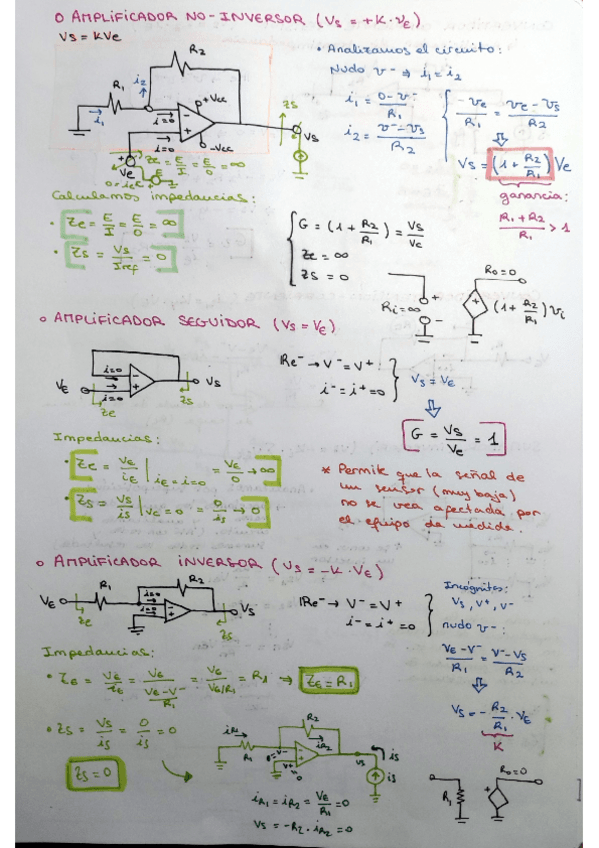 O AMPLIFICADOR NO-INVERSOR (Vs = +K·Ve)
Vs = KVe
R2
R1
i2
i1
i=0
i=0
+Vcc
-Vcc
Zs
Vs
Ve
Ze = E/I = E/0 = ∞
• Analizamos el circuito:
Nudo V⁻ ⇒ i1 = i2
i1 = (0 - V⁻)/R1
i2 = (V⁻ - Vs)/R2
-Ve/R1 = (Ve - Vs)/R2
Vs = (1 + R2/R1) Ve
ganancia:
(R1 + R2)/R1 > 1
Calculamos impedancias:
• Ze = E/I = E/0 = ∞
• Zs = Vs/Iref = 0
G = (1 + R2/R1) = Vs/Ve
Ze = ∞
Zs = 0
Ri = ∞
Ro = 0
(1 + R2/R1) Vi
o AMPLIFICADOR SEGUIDOR (Vs = VE)
i=0
i=0
VE
Ze
Vs
Zs
Re⁻ → V⁻ = V⁺
i⁻ = i⁺ = 0
Vs = VE
G = Vs/Ve = 1
Impedancias:
• Ze = VE/iE | iE = i = 0 = VE/0 → ∞
• Zs = Vs/is | VE = 0 = 0/is → 0
* Permite que la señal de
un sensor (muy baja)
no se vea afectada por
el equipo de medida.
o AMPLIFICADOR INVERSOR (Vs = -K·VE)
VE
R1
R2
i=0
i=0
Ze
Vs
Zs
Re⁻ → V⁻ = V⁺
i⁻ = i⁺ = 0
Incógnitas:
Vs, V⁺, V⁻
nudo V⁻:
(VE - V⁻)/R1 = (V⁻ - Vs)/R2
Vs = -R2/R1 · VE
K
Impedancias:
• ZE = VE/iE = VE/((VE - V⁻)/R1) = VE/(VE/R1) = R1 → ZE = R1
• Zs = Vs/is = 0/is = 0
Zs = 0
iR1
R1
R2
iR2
V⁻
V⁺
0
Vs
is
is
iR1 = iR2 = VE/R1 = 0
Vs = -R2 · iR2 = 0
R1
Ro = 0